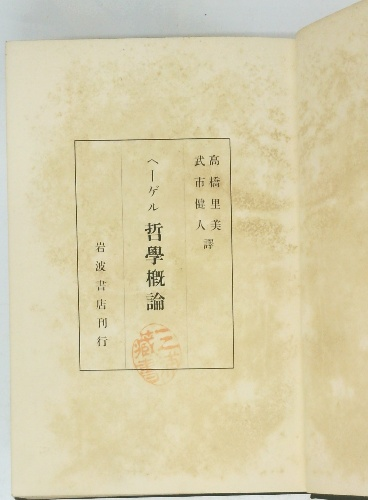 高橋里美
武市健人 譯
ヘーゲル 哲學概論
岩波書店刊行